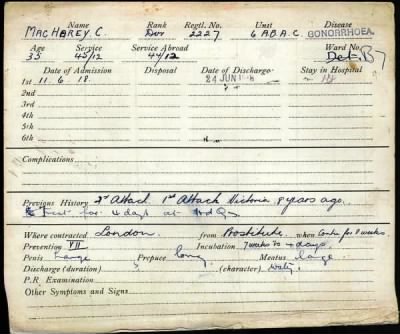 Name Rank Regtl. No. Unit Disease
MacHarey C. Dvr 2227 6 A.B.A.C. GONORRHOEA.
Age Service Service Abroad Ward No.
35 45/12 44/12 Det. B7
Date of Admission Disposal Date of Discharge Stay in Hospital
1st 11.6.18. 24 JUN
2nd
3rd
4th
5th
6th
Complications
Previous History 2nd Attack. 1st Attack Victoria 8 years ago.
Treat for 4 days at HdQrs
Where contracted London from Prostitute when 8 weeks
Prevention VII Incubation 7 weeks 4 days.
Penis Large Prepuce long Meatus large
Discharge (duration) (character) Watery
P.R. Examination
Other Symptoms and Signs